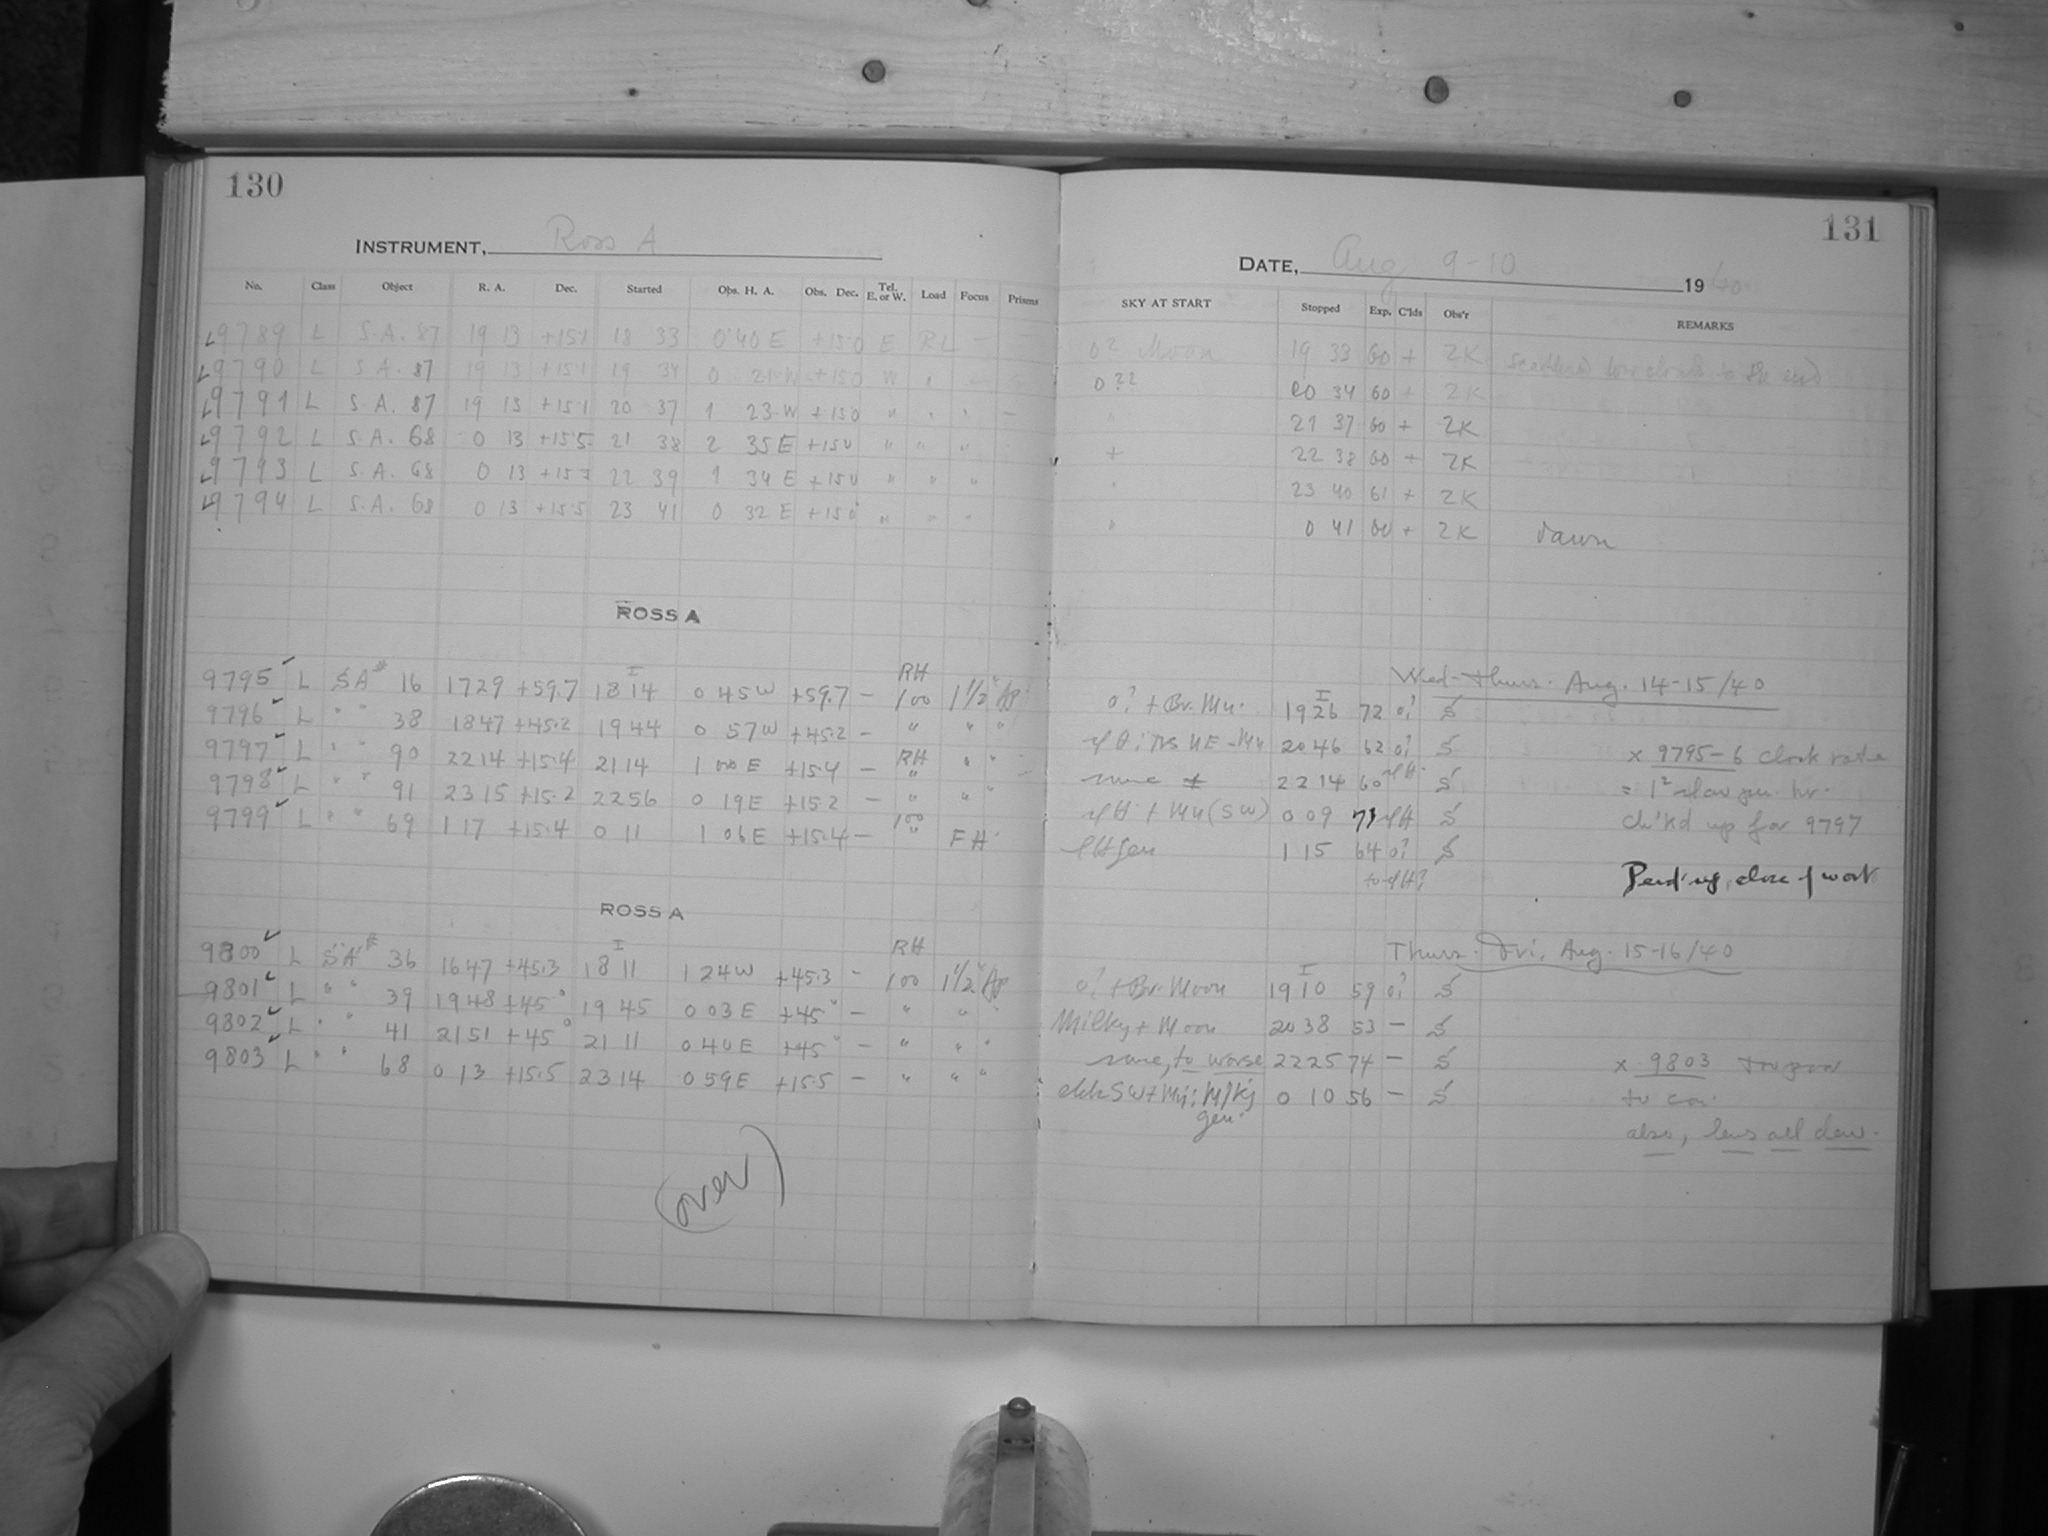 130
INSTRUMENT, Ross A
No. Class Object R. A. Dec. Started Obs. H. A. Obs. Dec. Tel. E. or W. Load Focus Prisms
9789 L S.A. 87 19 13 +15.1 18 33 0 40 E +15.0 E RL -
9790 L S.A. 87 19 13 +15.1 19 34 0 21 W +150 W "
9791 L S.A. 87 19 13 +15.1 20 37 1 23 W +150 " " "
9792 L S.A. 68 0 13 +15.5 21 38 2 35 E +150 " " "
9793 L S.A. 68 0 13 +15.5 22 39 1 34 E +150 " " "
9794 L S.A. 68 0 13 +15.5 23 41 0 32 E +150 " " "
ROSS A
RH
9795 L SA# 16 1729 +59.7 18 14 0 45 W +59.7 - 100 1 1/2" Ap
9796 L " " 38 1847 +45.2 1944 0 57 W +45.2 - " " "
9797 L " " 90 2214 +15.4 2114 1 00 E +15.4 - RH " "
9798 L " " 91 2315 +15.2 2256 0 19 E +15.2 - " " "
9799 L " " 69 1 17 +15.4 0 11 1 06 E +15.4 - 100 " FH
ROSS A
RH
9800 L SA# 36 1647 +45.3 18 11 1 24 W +45.3 - 100 1 1/2" Ap
9801 L " " 39 1948 +45° 19 45 0 03 E +45° - " " "
9802 L " " 41 2151 +45° 21 11 0 40 E +45° - " " "
9803 L " " 68 0 13 +15.5 2314 0 59 E +15.5 - " " "
(over)
131
DATE, Aug 9-10 1940
SKY AT START Stopped Exp. C'lds Obs'r REMARKS
0? Moon 19 33 60 + ZK scattered low clouds to the end
0?? 20 34 60 + ZK
21 37 60 + ZK
+ 22 38 60 + ZK
" 23 40 61 + ZK
" 0 41 60 + ZK dawn
Wed-Thurs. Aug. 14-15/40
0? + Br. Mn. 1926 72 0? S
2046 62 0? S x 9795-6 clock rate
same 2214 60 S
+ Mn (SW) 0 09 73 S ch'kd up for 9797
gen 1 15 64 0? S
Pend'ng, close of work
Thurs. Fri, Aug. 15-16/40
0? + Br. Moon 1910 59 0? S
Milky + Moon 2038 53 - S
same, to worse 2225 74 - S x 9803
SW + Mn; Mlky 0 10 56 - S
gen.
also, lens all dew.